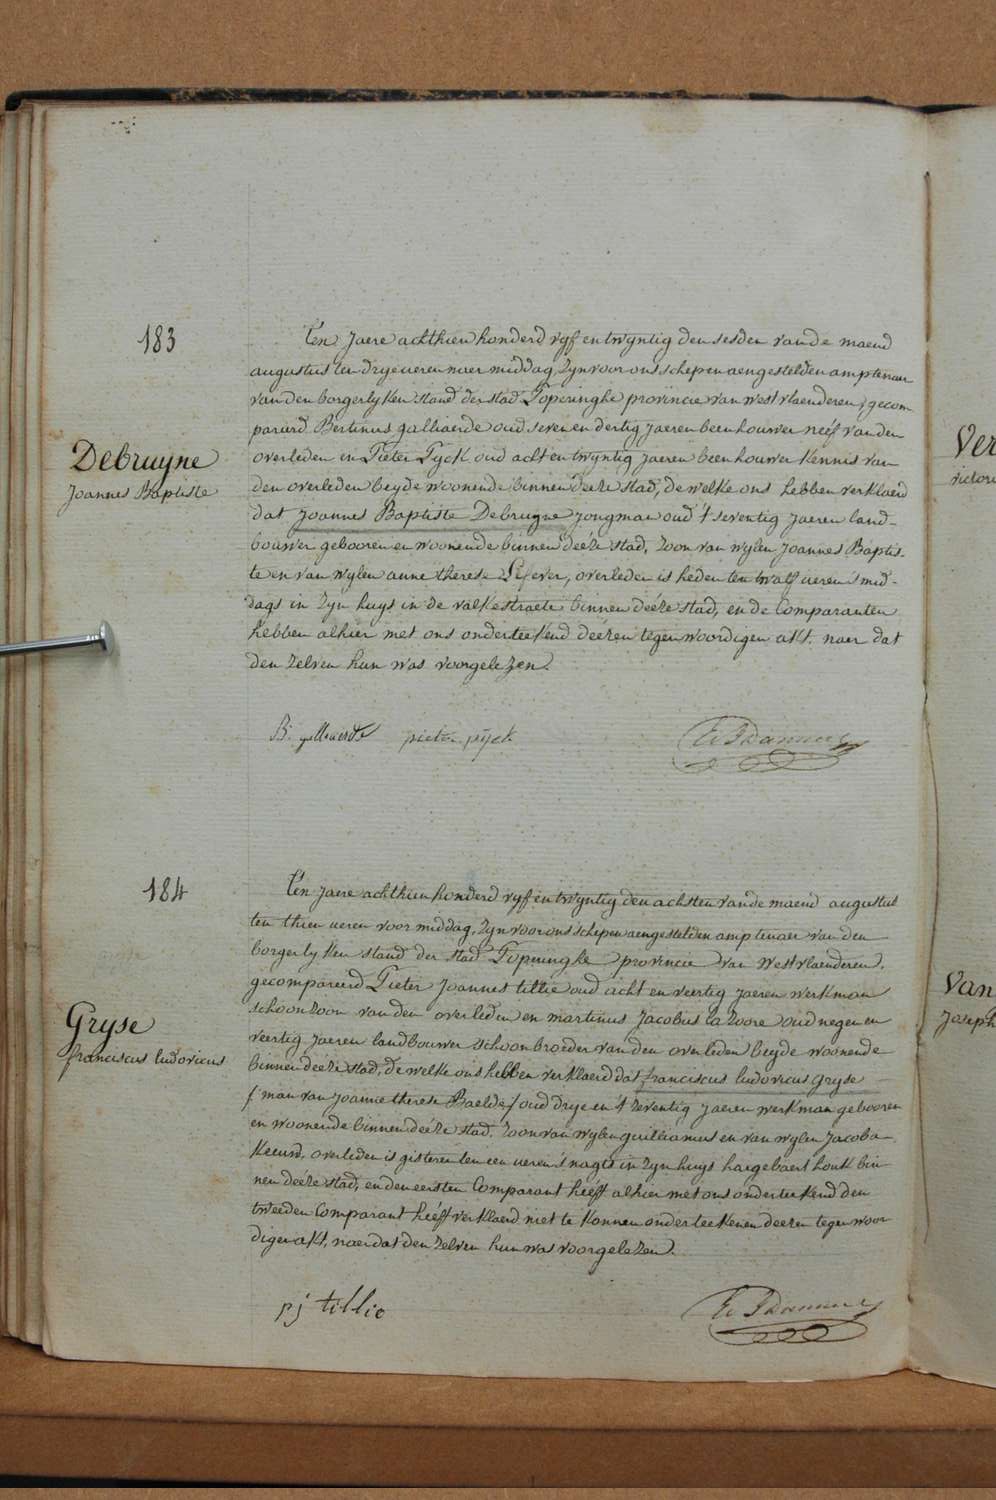 183
Debruyne
Joannes Baptiste
Ten Jaere achthien honderd vyf en twyntig den sesden van de maend
augustus ten drye ueren naer middag, Zyn voor ons schepen aengestelden amptenaer
van den borgerlyken stand der stad Poperinghe provincie van west vlaenderen, gecom
pareerd Bertinus galliaerde oud seven en dertig jaeren beenhouwer neef van den
overleden en Pieter Pyck oud acht en twyntig jaeren beenhouwer kennis van
den overleden beyde woonende binnen deeze stad, de welke ons hebben verklaerd
dat Joannes Baptiste Debruyne jongman oud 't seventig jaeren land-
bouwer gebooren en woonende binnen deéze stad, Zoon van wylen Joannes Baptis-
te en van wylen anne therese Lefever, overleden is heden ten twalf ueren 's mid-
dags in Zyn huys in de valkestraete binnen deéze stad, en de Comparanten
hebben alhier met ons onderteekend deézen tegenwoordigen akt. naer dat
den Zelven hun was voorgelezen.
B. galliaerde pieter pyck
184
Gryse
franciscus ludovicus
Ten jaere achthien honderd vyf en twyntig den achsten van de maend augustus
ten thien ueren voor middag, Zyn voor ons schepen aengestelden amptenaer van den
borgerlyken stand der stad Poperinghe provincie van Westvlaenderen.
gecompareerd Pieter Joannes tillie oud acht en veertig jaeren werkman
schoonzoon van den overleden en martinus Jacobus la Zoore oud negen en
veertig jaeren landbouwer schoonbroeder van den overleden beyde woonende
binnen deéze stad, de welke ons hebben verklaerd dat franciscus ludovicus Gryse
/ man van joanne therese Baelde / oud drye en 't Zeventig jaeren werkman gebooren
en woonende binnen deeze stad. Zoon van wylen guilliamus en van wylen Jacoba
Keeurd, overleden is gisteren ten een ueren 's nagts in Zyn huys haegebaert houk bin-
nen deéze stad, en den eersten Comparant heéft alhier met ons onderteekend den
tweeden Comparant heéft verklaerd niet te konnen onderteekenen deezen tegenwoor
digen akt, naer dat den Zelven hun was voorgelezen.
pj tillie
Ver
victor
Van
Joseph